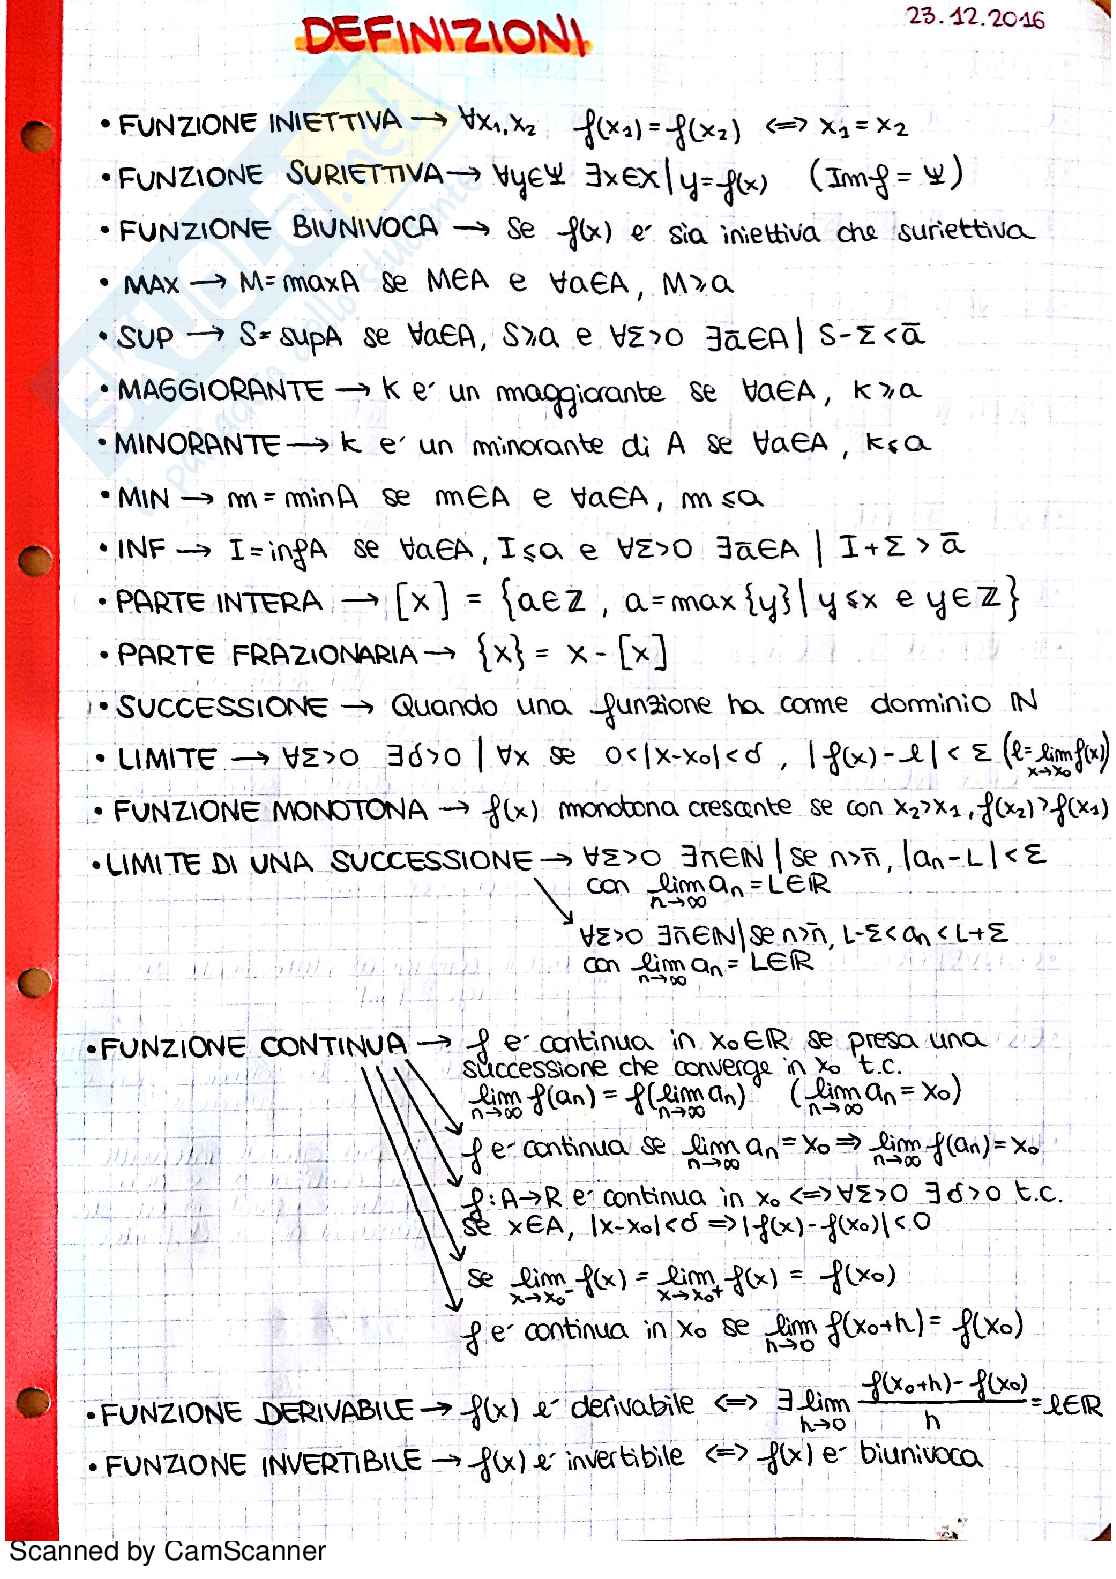 23.12.2016
DEFINIZIONI
• FUNZIONE INIETTIVA → ∀x₁,x₂ f(x₁)=f(x₂) <=> x₁=x₂
• FUNZIONE SURIETTIVA → ∀y∈Ψ ∃x∈X | y=f(x) (Imf = Ψ)
• FUNZIONE BIUNIVOCA → Se f(x) e' sia iniettiva che suriettiva
• MAX → M=maxA se M∈A e ∀a∈A, M⩾a
• SUP → S=supA se ∀a∈A, S⩾a e ∀Σ>0 ∃ā∈A | S-Σ<ā
• MAGGIORANTE → K e' un maggiorante se ∀a∈A, K⩾a
• MINORANTE → k e' un minorante di A se ∀a∈A, k⩽a
• MIN → m = minA se m∈A e ∀a∈A, m⩽a
• INF → I=infA se ∀a∈A, I⩽a e ∀Σ>0 ∃ā∈A | I+Σ>ā
• PARTE INTERA → [x] = {a∈Z, a=max{y} | y⩽x e y∈Z}
• PARTE FRAZIONARIA → {x} = x-[x]
• SUCCESSIONE → Quando una funzione ha come dominio IN
• LIMITE → ∀Σ>0 ∃δ>0 | ∀x se 0<|x-x₀|<δ, |f(x)-l|<Σ (l=lim f(x))
x→x₀
• FUNZIONE MONOTONA → f(x) monotona crescente se con x₂>x₁, f(x₂)>f(x₁)
• LIMITE DI UNA SUCCESSIONE → ∀Σ>0 ∃n̄∈IN | se n>n̄, |aₙ-L|<Σ
con lim aₙ=L∈IR
n→∞
∀Σ>0 ∃n̄∈IN | se n>n̄, L-Σ<aₙ<L+Σ
con lim aₙ = L∈IR
n→∞
• FUNZIONE CONTINUA → f e' continua in x₀∈IR se presa una
successione che converge in x₀ t.c.
lim f(aₙ) = f(lim aₙ) (lim aₙ = x₀)
n→∞ n→∞ n→∞
f e' continua se lim aₙ = x₀ ⇒ lim f(aₙ)=x₀
n→∞ n→∞
f:A→R e' continua in x₀ <=> ∀Σ>0 ∃δ>0 t.c.
se x∈A, |x-x₀|<δ ⇒ |f(x)-f(x₀)|<0
se lim f(x) = lim f(x) = f(x₀)
x→x₀⁻ x→x₀⁺
f e' continua in x₀ se lim f(x₀+h) = f(x₀)
h→0
• FUNZIONE DERIVABILE → f(x) e' derivabile <=> ∃ lim f(x₀+h)-f(x₀) / h = l∈IR
h→0
• FUNZIONE INVERTIBILE → f(x) e' invertibile <=> f(x) e' biunivoca
Scanned by CamScanner